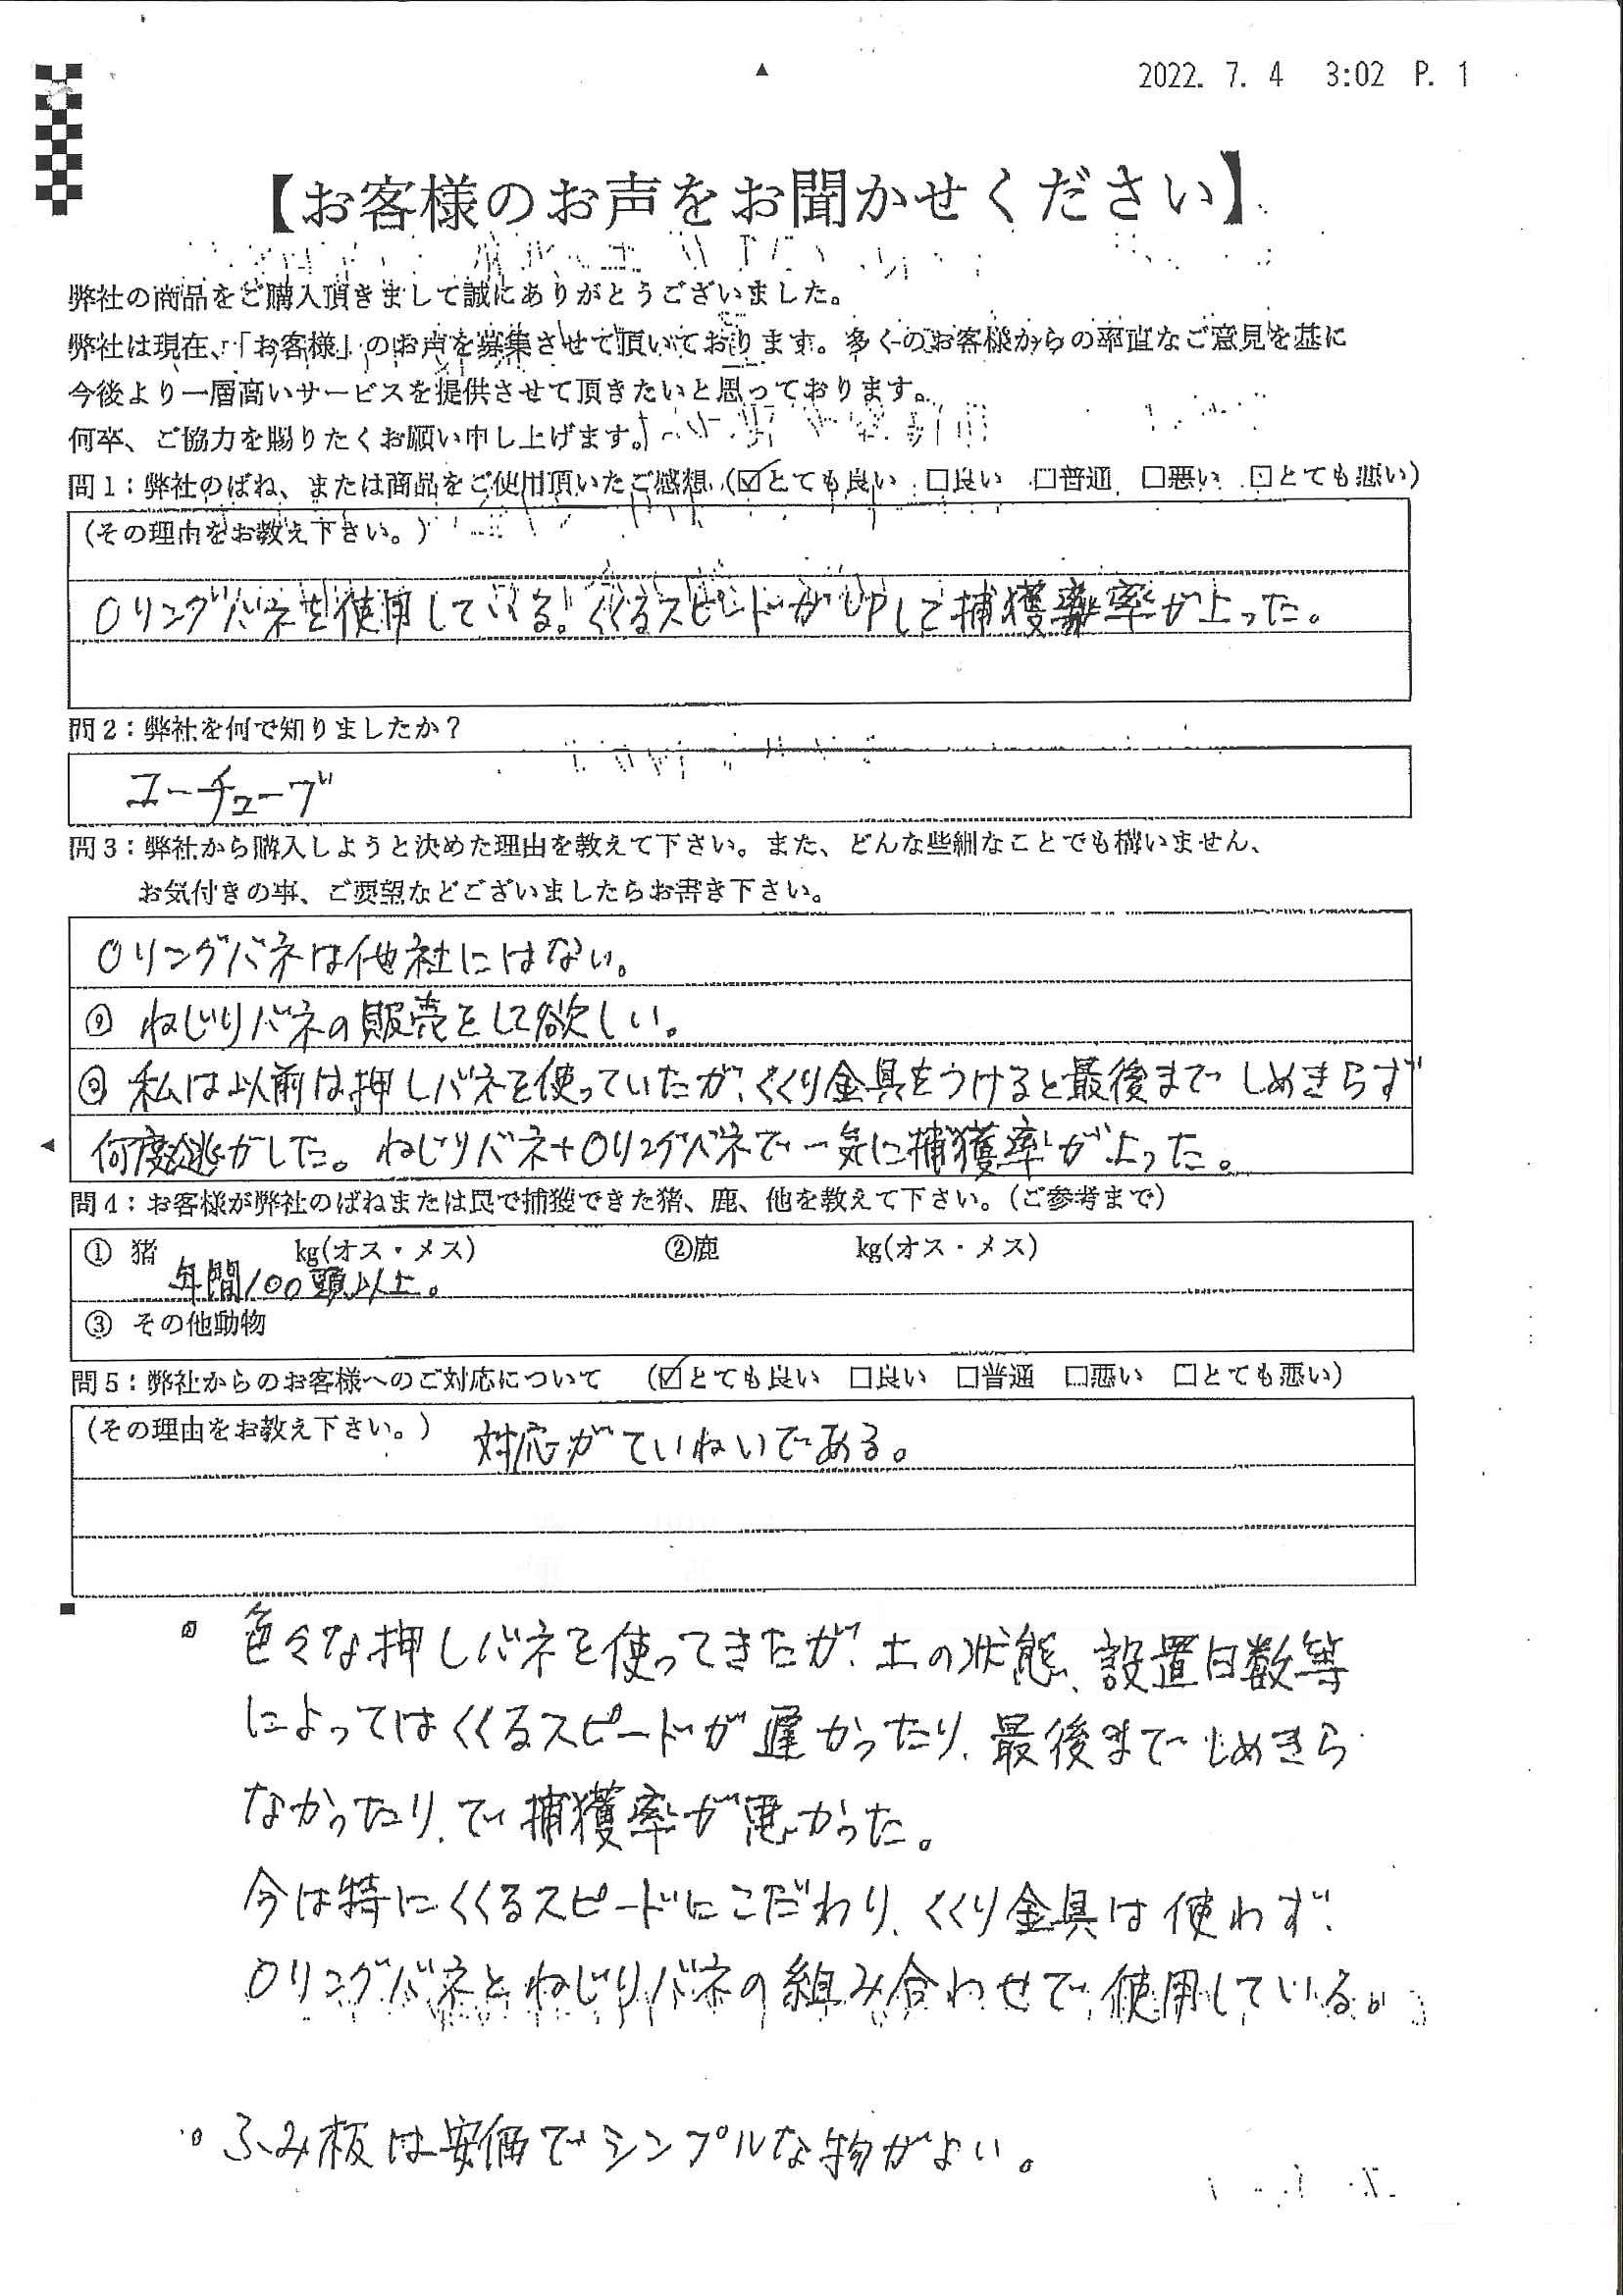 2022. 7. 4 3:02 P. 1
【お客様のお声をお聞かせください】
弊社の商品をご購入頂きまして誠にありがとうございました。
弊社は現在、「お客様」のお声を募集させて頂いております。多くのお客様からの率直なご意見を基に
今後より一層高いサービスを提供させて頂きたいと思っております。
何卒、ご協力を賜りたくお願い申し上げます。
問1：弊社のばね、または商品をご使用頂いたご感想（☑とても良い □良い □普通 □悪い □とても悪い）
（その理由をお教え下さい。）
Oリングバネを使用している。くくるスピードがUPして捕獲率が上った。
問2：弊社を何で知りましたか？
ユーチューブ
問3：弊社から購入しようと決めた理由を教えて下さい。また、どんな些細なことでも構いません、
お気付きの事、ご要望などございましたらお書き下さい。
Oリングバネは他社にはない。
◎ ねじりバネの販売をして欲しい。
◎ 私は以前は押しバネを使っていたが、くくり金具をつけると最後までしめきらず
何度逃がした。ねじりバネ+Oリングバネで一気に捕獲率が上った。
問4：お客様が弊社のばねまたは罠で捕獲できた猪、鹿、他を教えて下さい。（ご参考まで）
① 猪 kg(オス・メス) ②鹿 kg(オス・メス)
年間100頭以上。
③ その他動物
問5：弊社からのお客様へのご対応について （☑とても良い □良い □普通 □悪い □とても悪い）
（その理由をお教え下さい。） 対応がていねいである。
◦ 色々な押しバネを使ってきたが、土の状態、設置日数等
によってはくくるスピードが遅かったり、最後までしめきら
なかったり、で捕獲率が悪かった。
今は特にくくるスピードにこだわり、くくり金具は使わず、
Oリングバネとねじりバネの組み合わせで使用している。
◦ ふみ板は安価でシンプルな物がよい。